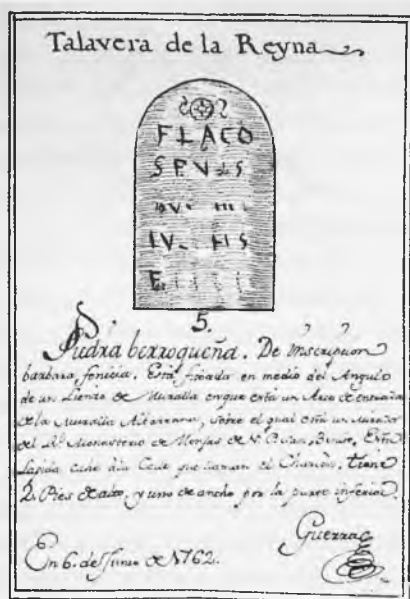 Talavera de la Reyna
FLACO
S P V S
IV HS
E
5.
Piedra berroqueña. De Inscripcion
barbara fenicia. Está fixada en medio del Angulo
de un Lienzo de Muralla en que está un Arco de entrada
de la Muralla Albarrana, sobre el qual está un mirador
del Rl. Monasterio de Monjas de Sn. Benito. Esta
Lapida cae a la Calle que llaman el Charcon. tiene
2. Pies de alto, y uno de ancho por la parte inferior.
Guerra
En 6. de Junio de 1762.